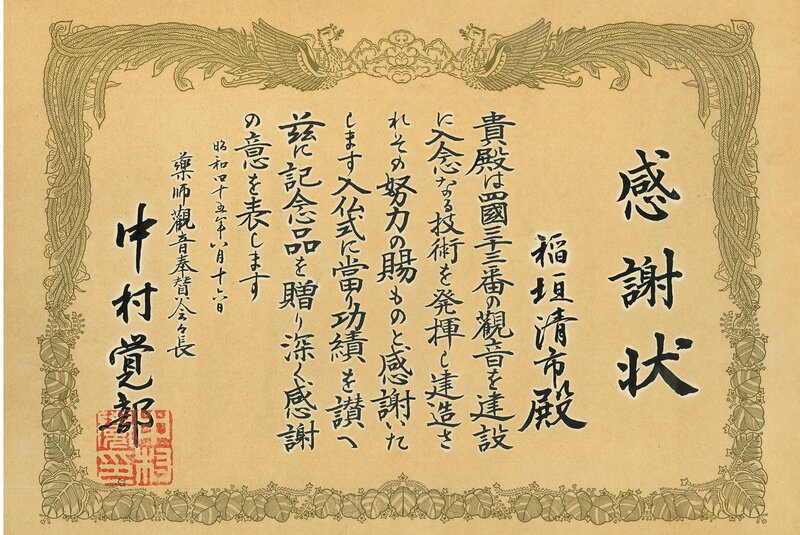 感謝状
稲垣清市殿
貴殿は四國三十三番の觀音を建設
に入念なる技術を発揮し建造さ
れその努力の賜ものと感謝いた
します入仏式に當り功績を讃へ
茲に記念品を贈り深く感謝
の意を表します
昭和四十五年八月十六日
藥師觀音奉賛会々長
中村覚部